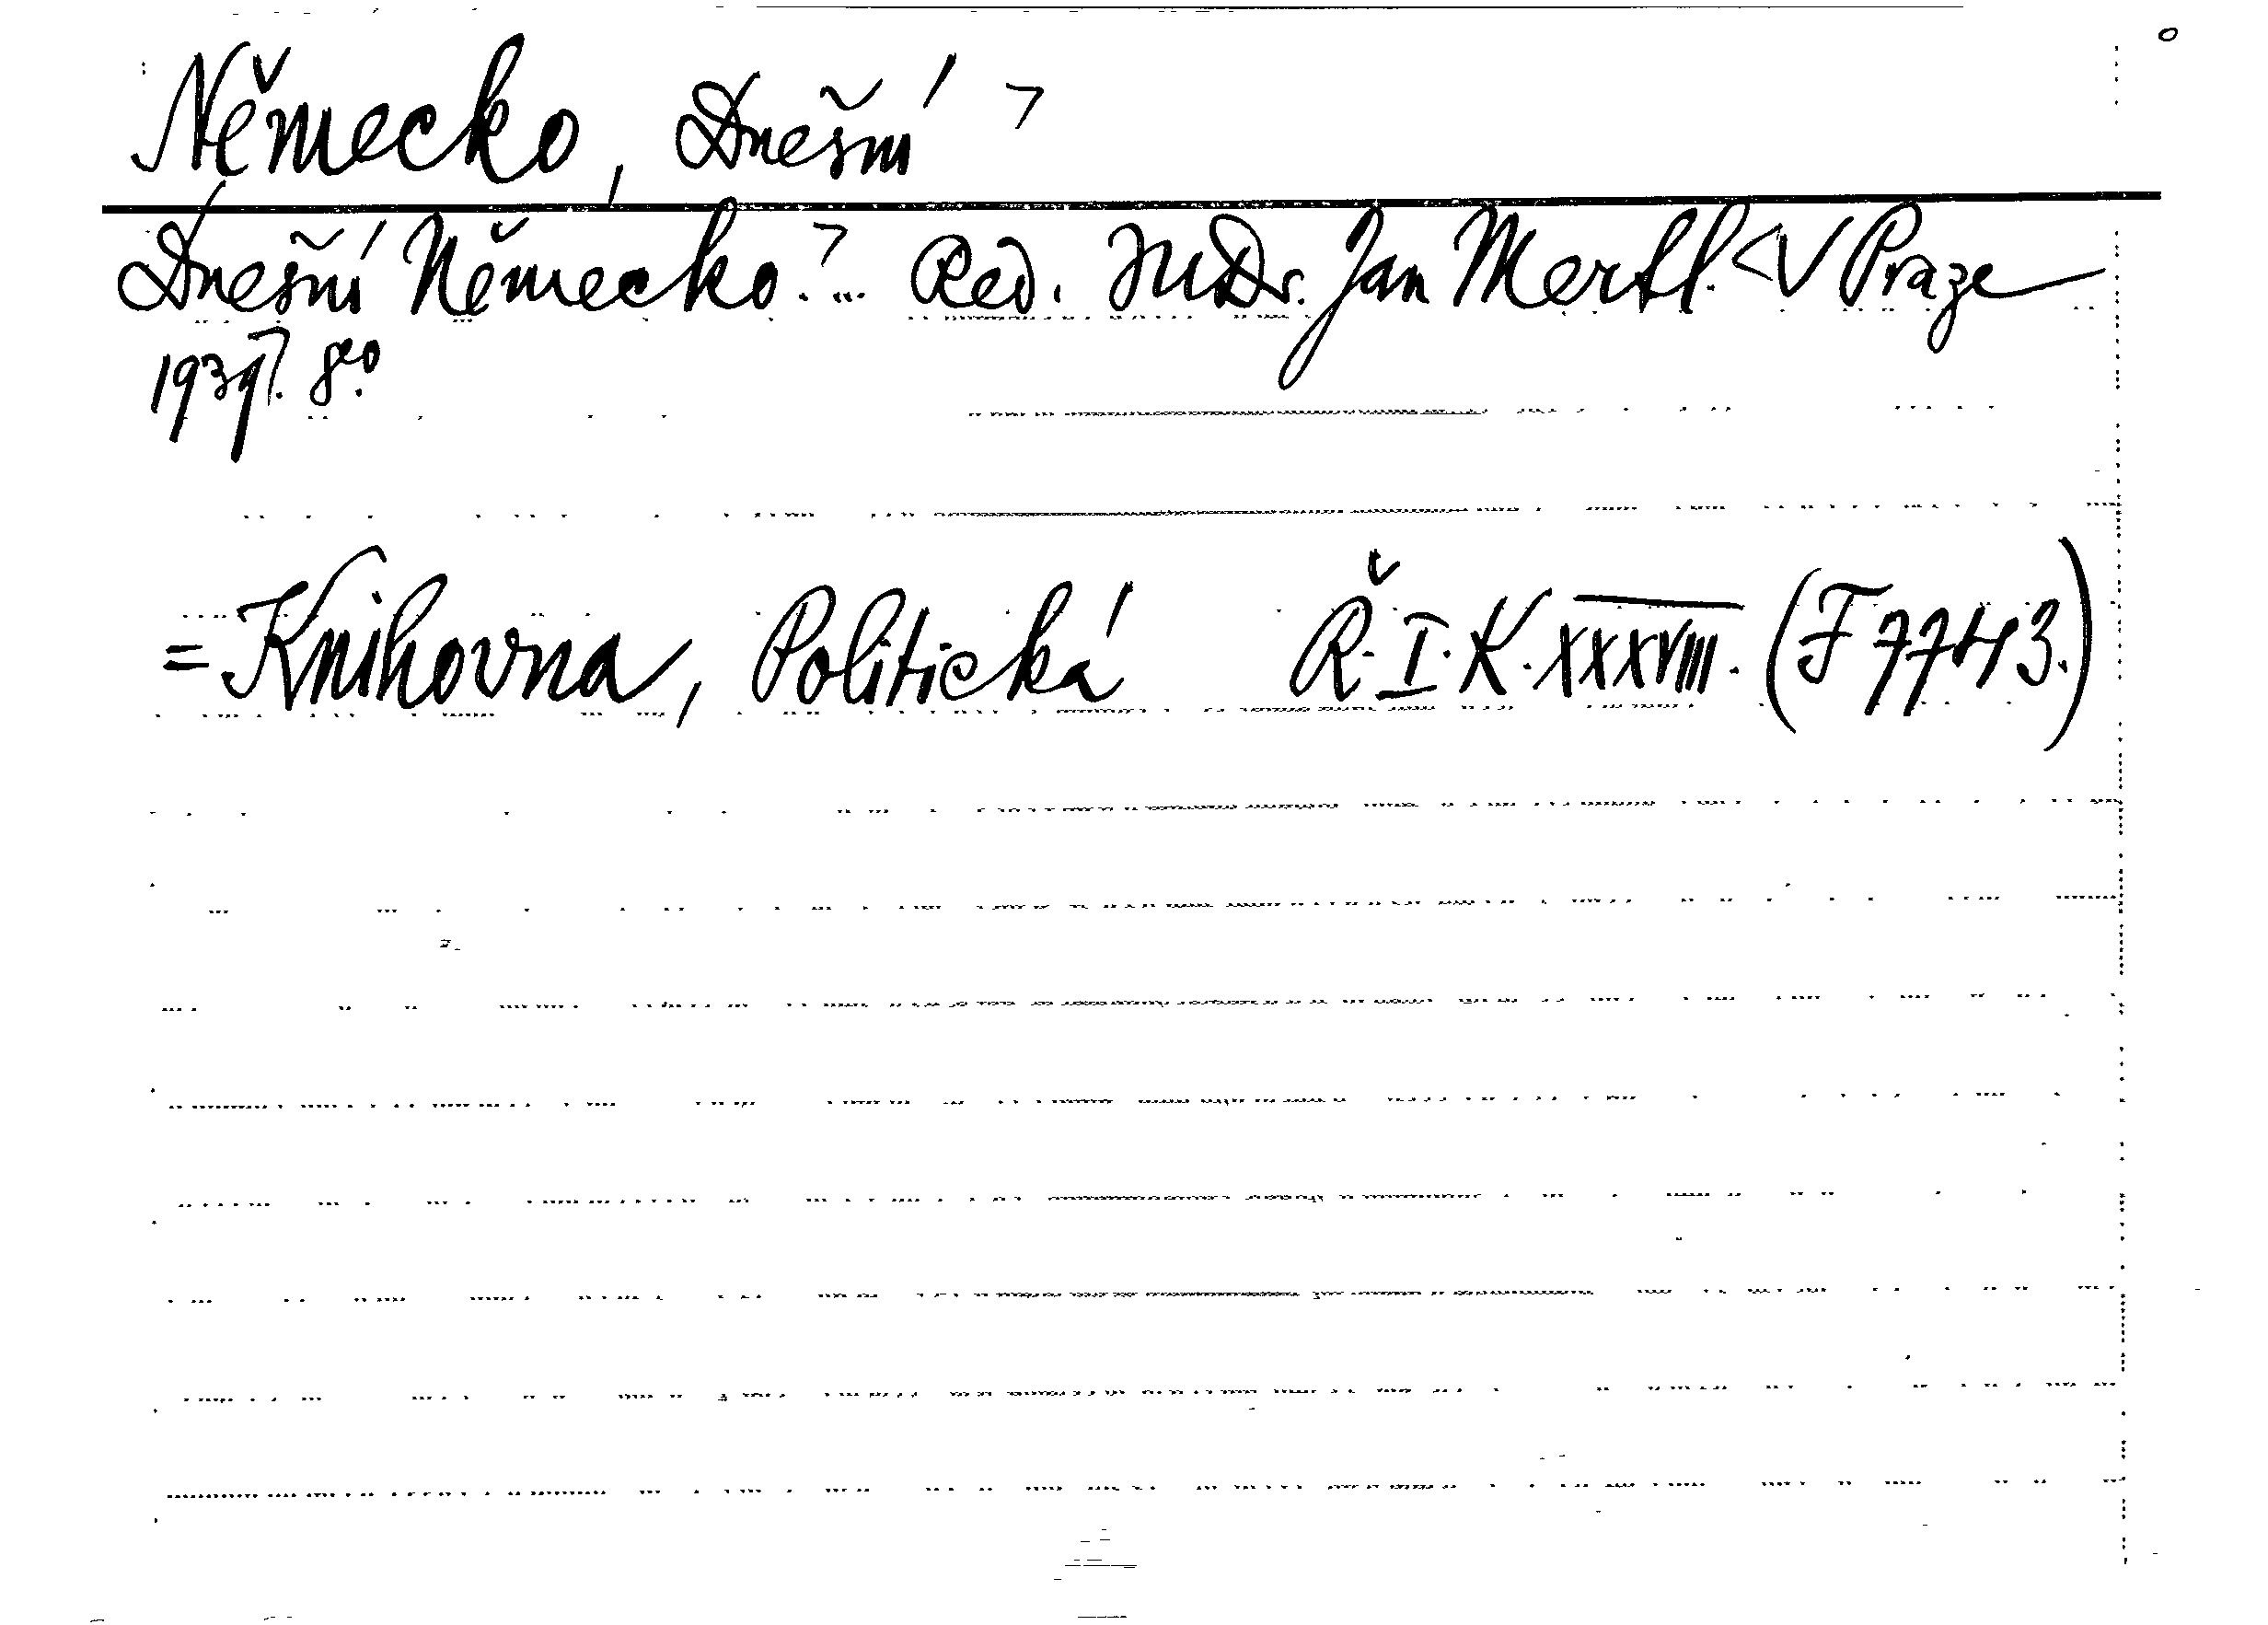 Německo, Dnešní ⁊
Dnešní Německo.⁊... Red. JUDr. Jan Mertl. < V Praze
1937⁊. 8°.
= Knihovna, Politická Ř. I. K. XXXVIII. (F 7743.)